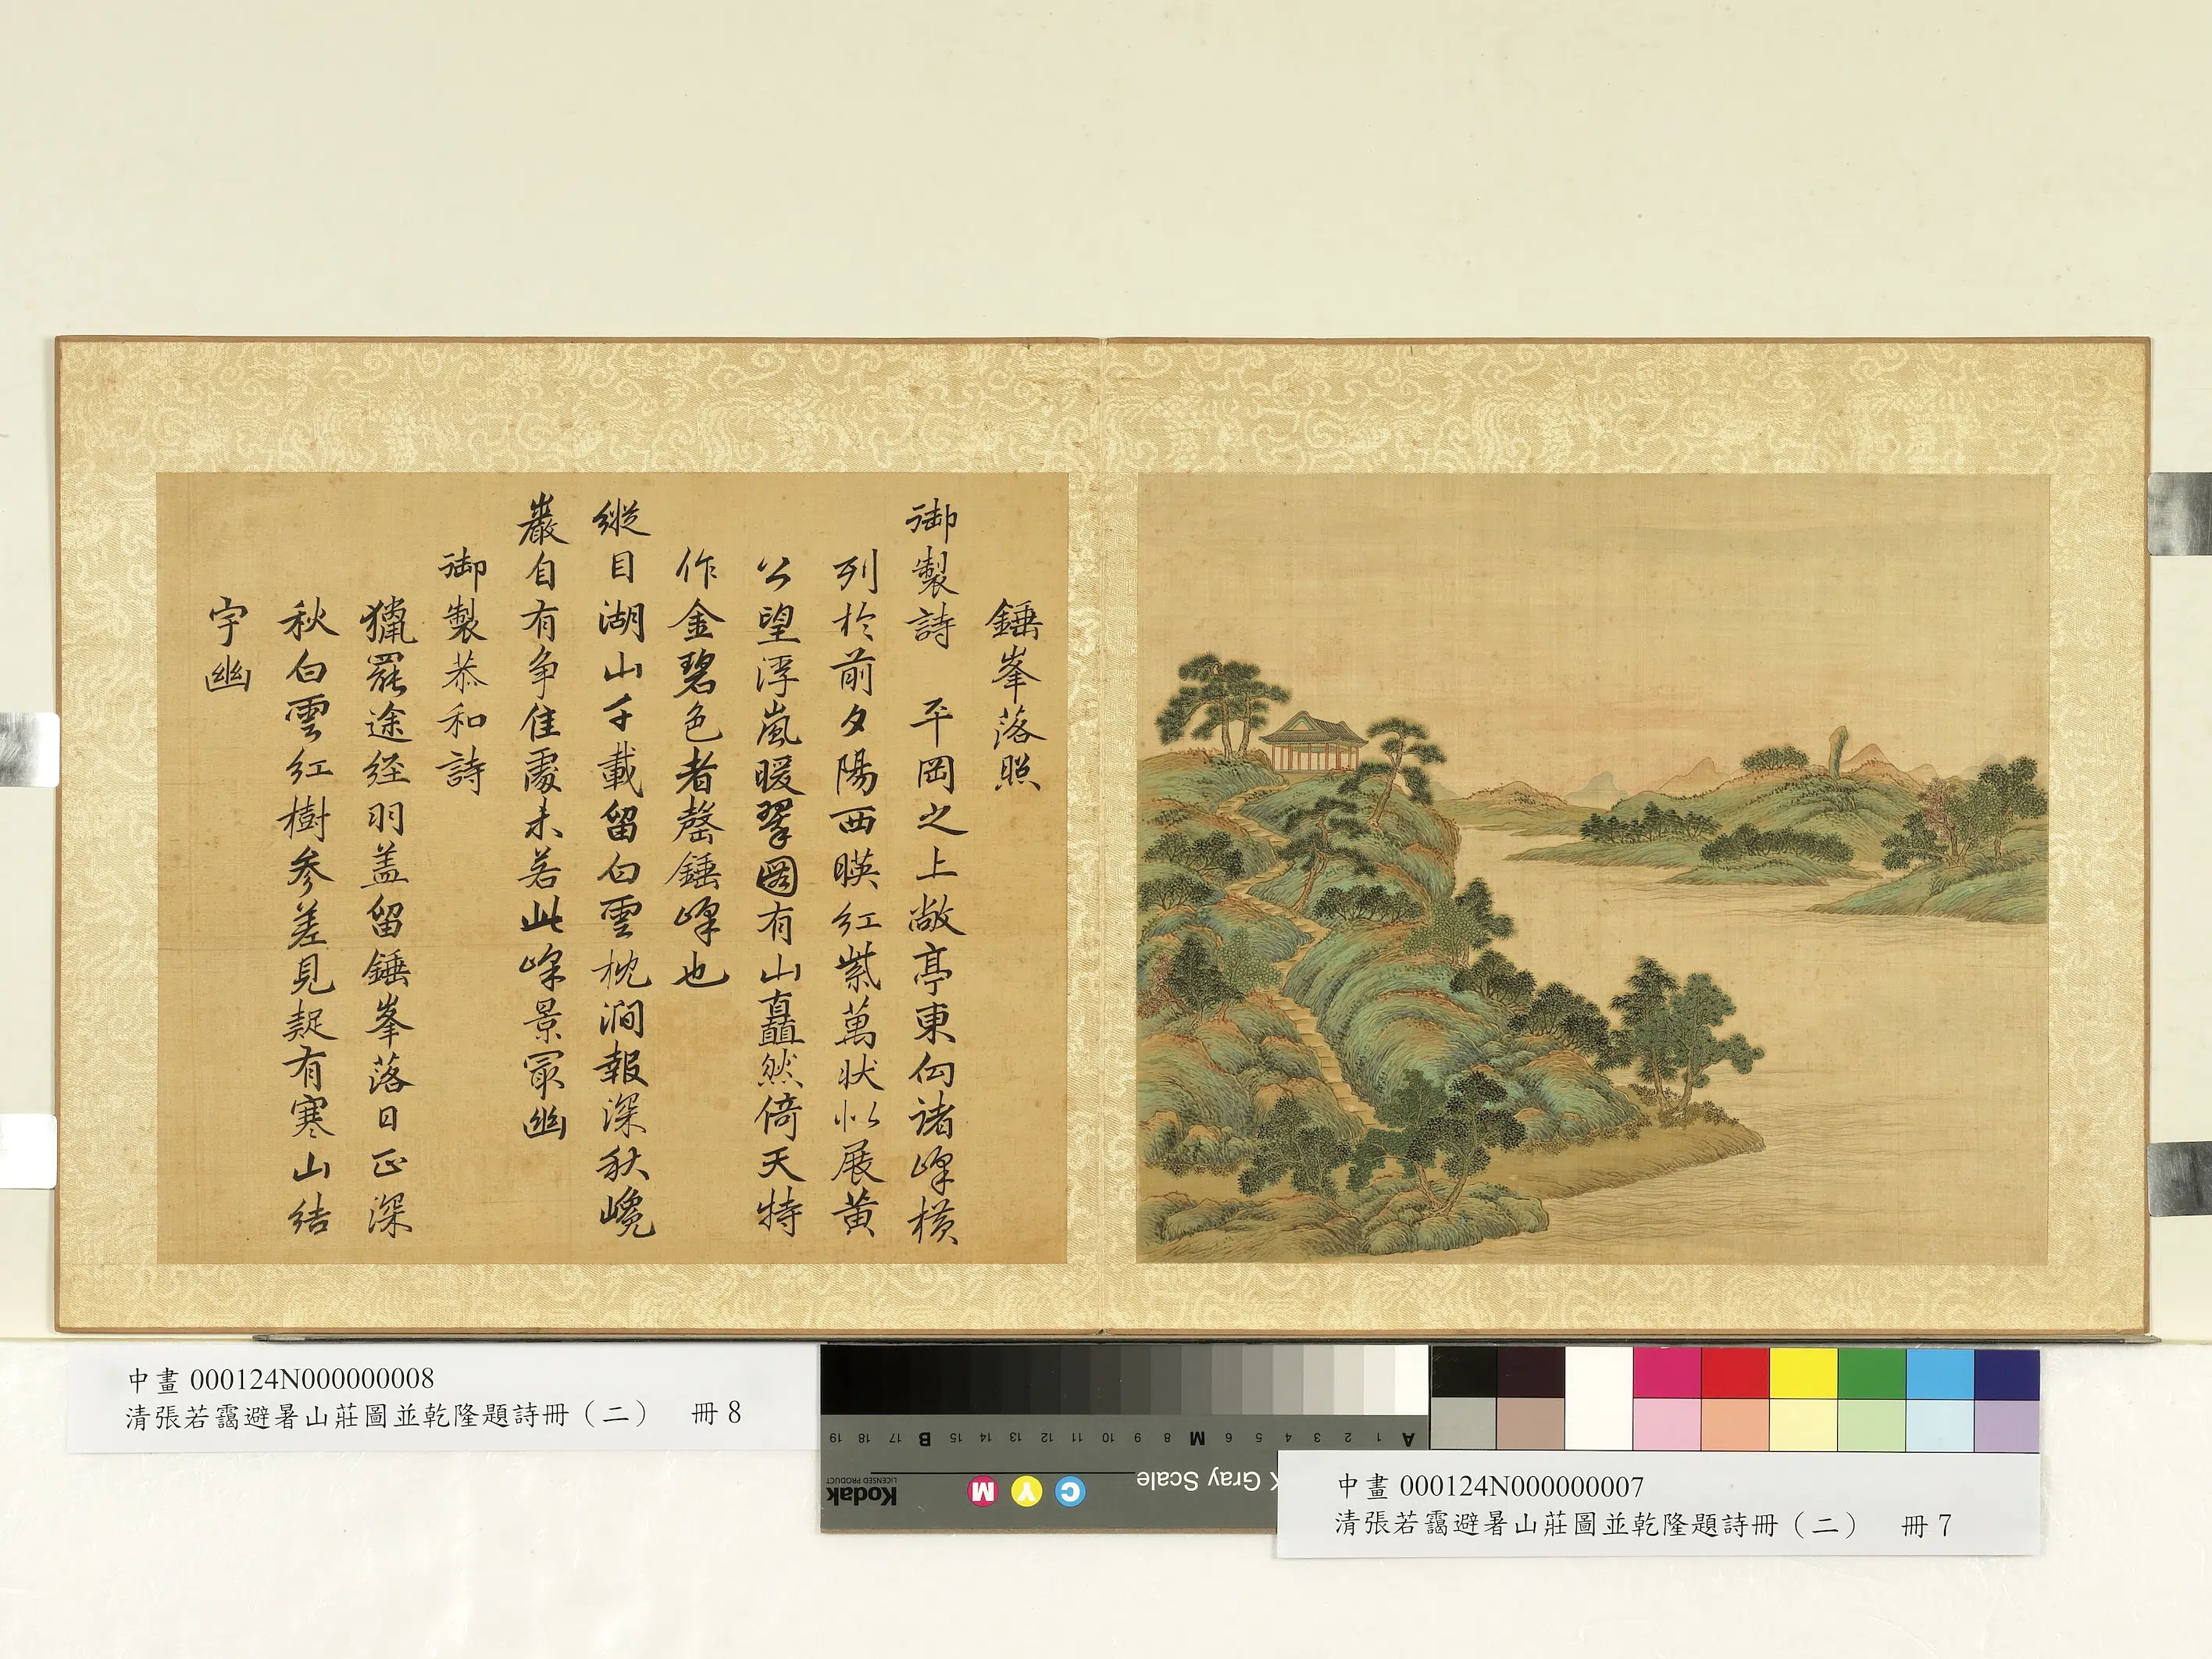 錘峯落照
御製詩 平岡之上敞亭東向諸峰横
列於前夕陽西暎紅紫萬狀似展黄
公望浮嵐暖翠圖有山矗然倚天特
作金碧色者磬錘峰也
縱目湖山千載留白雲枕澗報深秋巉
巖自有争佳處未若此峰景最幽
御製恭和詩
獵罷途経羽盖留錘峯落日正深
秋白雲紅樹參差見疑有寒山結
宇幽
中畫 000124N000000008
清張若靄避暑山莊圖並乾隆題詩冊（二） 冊 8
中畫 000124N000000007
清張若靄避暑山莊圖並乾隆題詩冊（二） 冊 7
A 1 2 3 4 5 6 M 8 9 10 11 12 13 14 15 B 17 18 19
Gray Scale
C Y M
Kodak
LICENSED PRODUCT